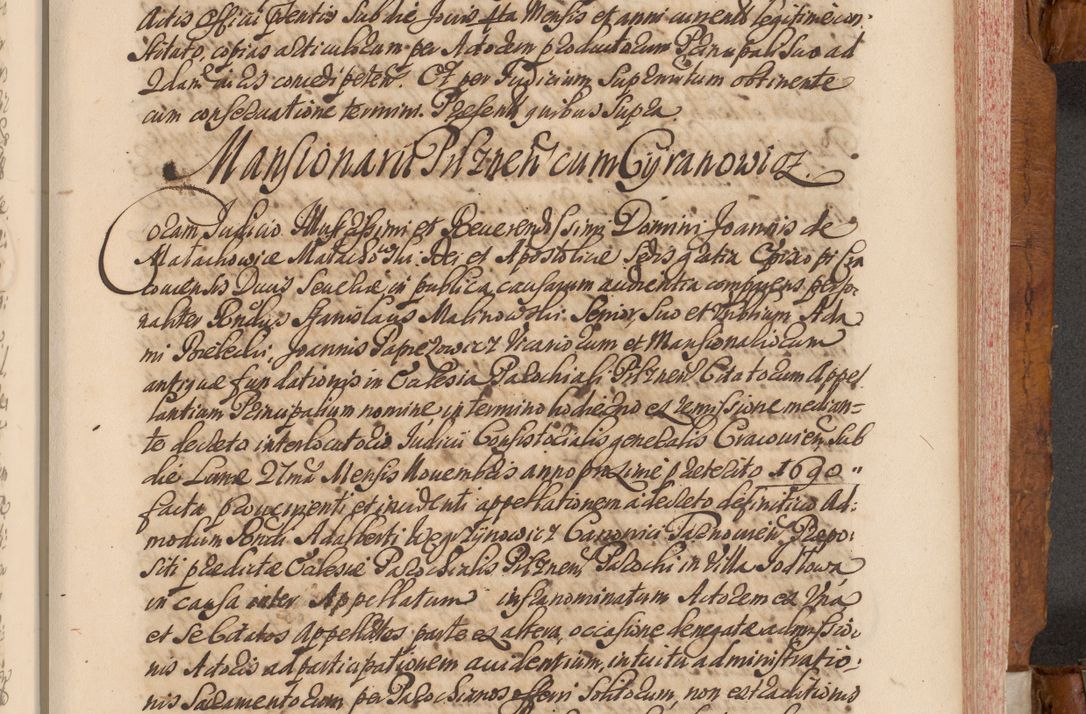 Actis Officii praesentis Sub die Jovis 4ta Mensis et anni current legitime con-
stituto, copias articulorum per Actorem productorum Principali suo ad
dari et concedi petent. Et per Judicium Supremum obtinente
cum conservatione termini. Present quibus supra.
Mansionarii Pilznen cum Cyranowicz.
Coram Judicio Illustrissimi et Reverendissimi Domini Joannis de
Małachowice Małachowski Dei et Apostolicae Sedis gratia Episcopi Cra
coviensis Ducis Severiae in publica causarum audientia comparens perso-
naliter Rndus Stanislaus Malinowski Senior, Suo et Rndorum Ada
mi Joannis Vicariorum et Mansionariorum
antiquae fundationis in Ecclesia Parochiali Pilznen Citatorum Appel
lantium Principalium nomine in termino hodierno ex remissione median=
te decreto interlocutorio Judicii Consistorialis generalis Cracovien Sub
die Lunae 27ma Mensis Novembris anno proxime praeterito 1690
facta provenienti et incidenti appellationem a decreto definitivo Ad-
modum Rndi Adalberti Węgrzynowicz Canonici Tarnovien Praepo-
siti praedictae Ecclesiae Parochialis Pilznen Parochi in Villa Jodłowa
in causa inter Appellatum infranominatum Actorem ex Una
et Se Citatos Appellatos parte ex altera, occasione denegatae admissio-
nis Actoris ad participationem accidentium, intuitu administratio-
nis Sacramentorum per Parochianos offerri Solitorum, non extraditionis